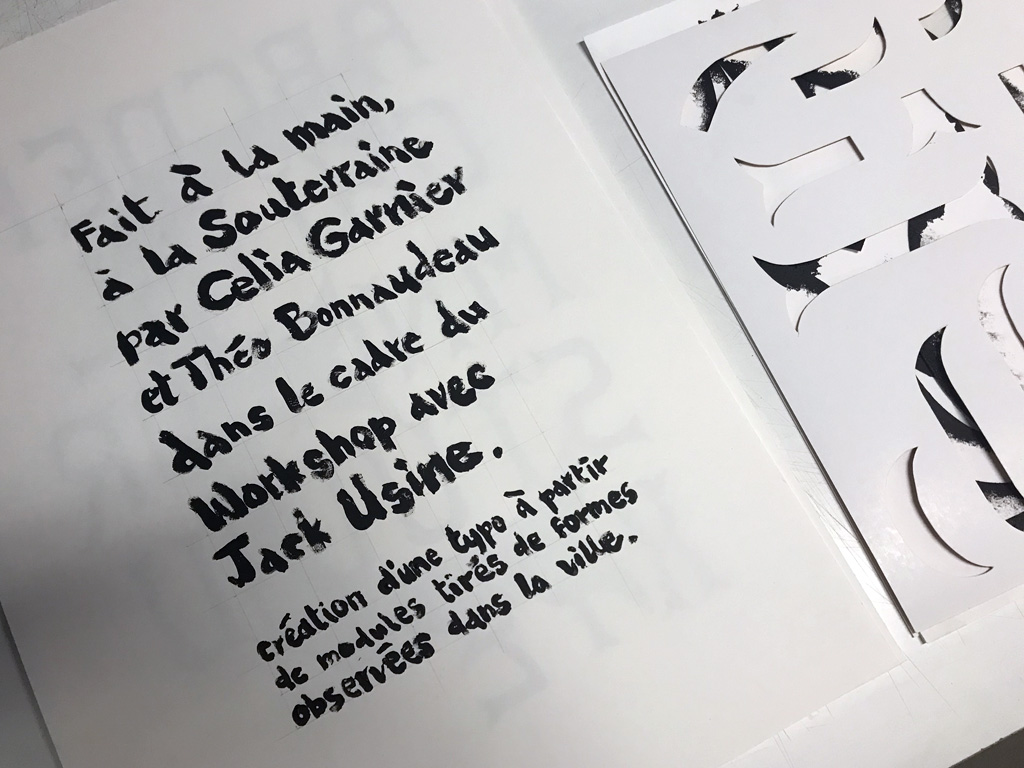 Fait à la main,
à la Souterraine
par Celia Garnier
et Théo Bonnaudeau
dans le cadre du
Workshop avec
Jack Usine.
création d'une typo à partir
de modules tirés de formes
observées dans la ville.